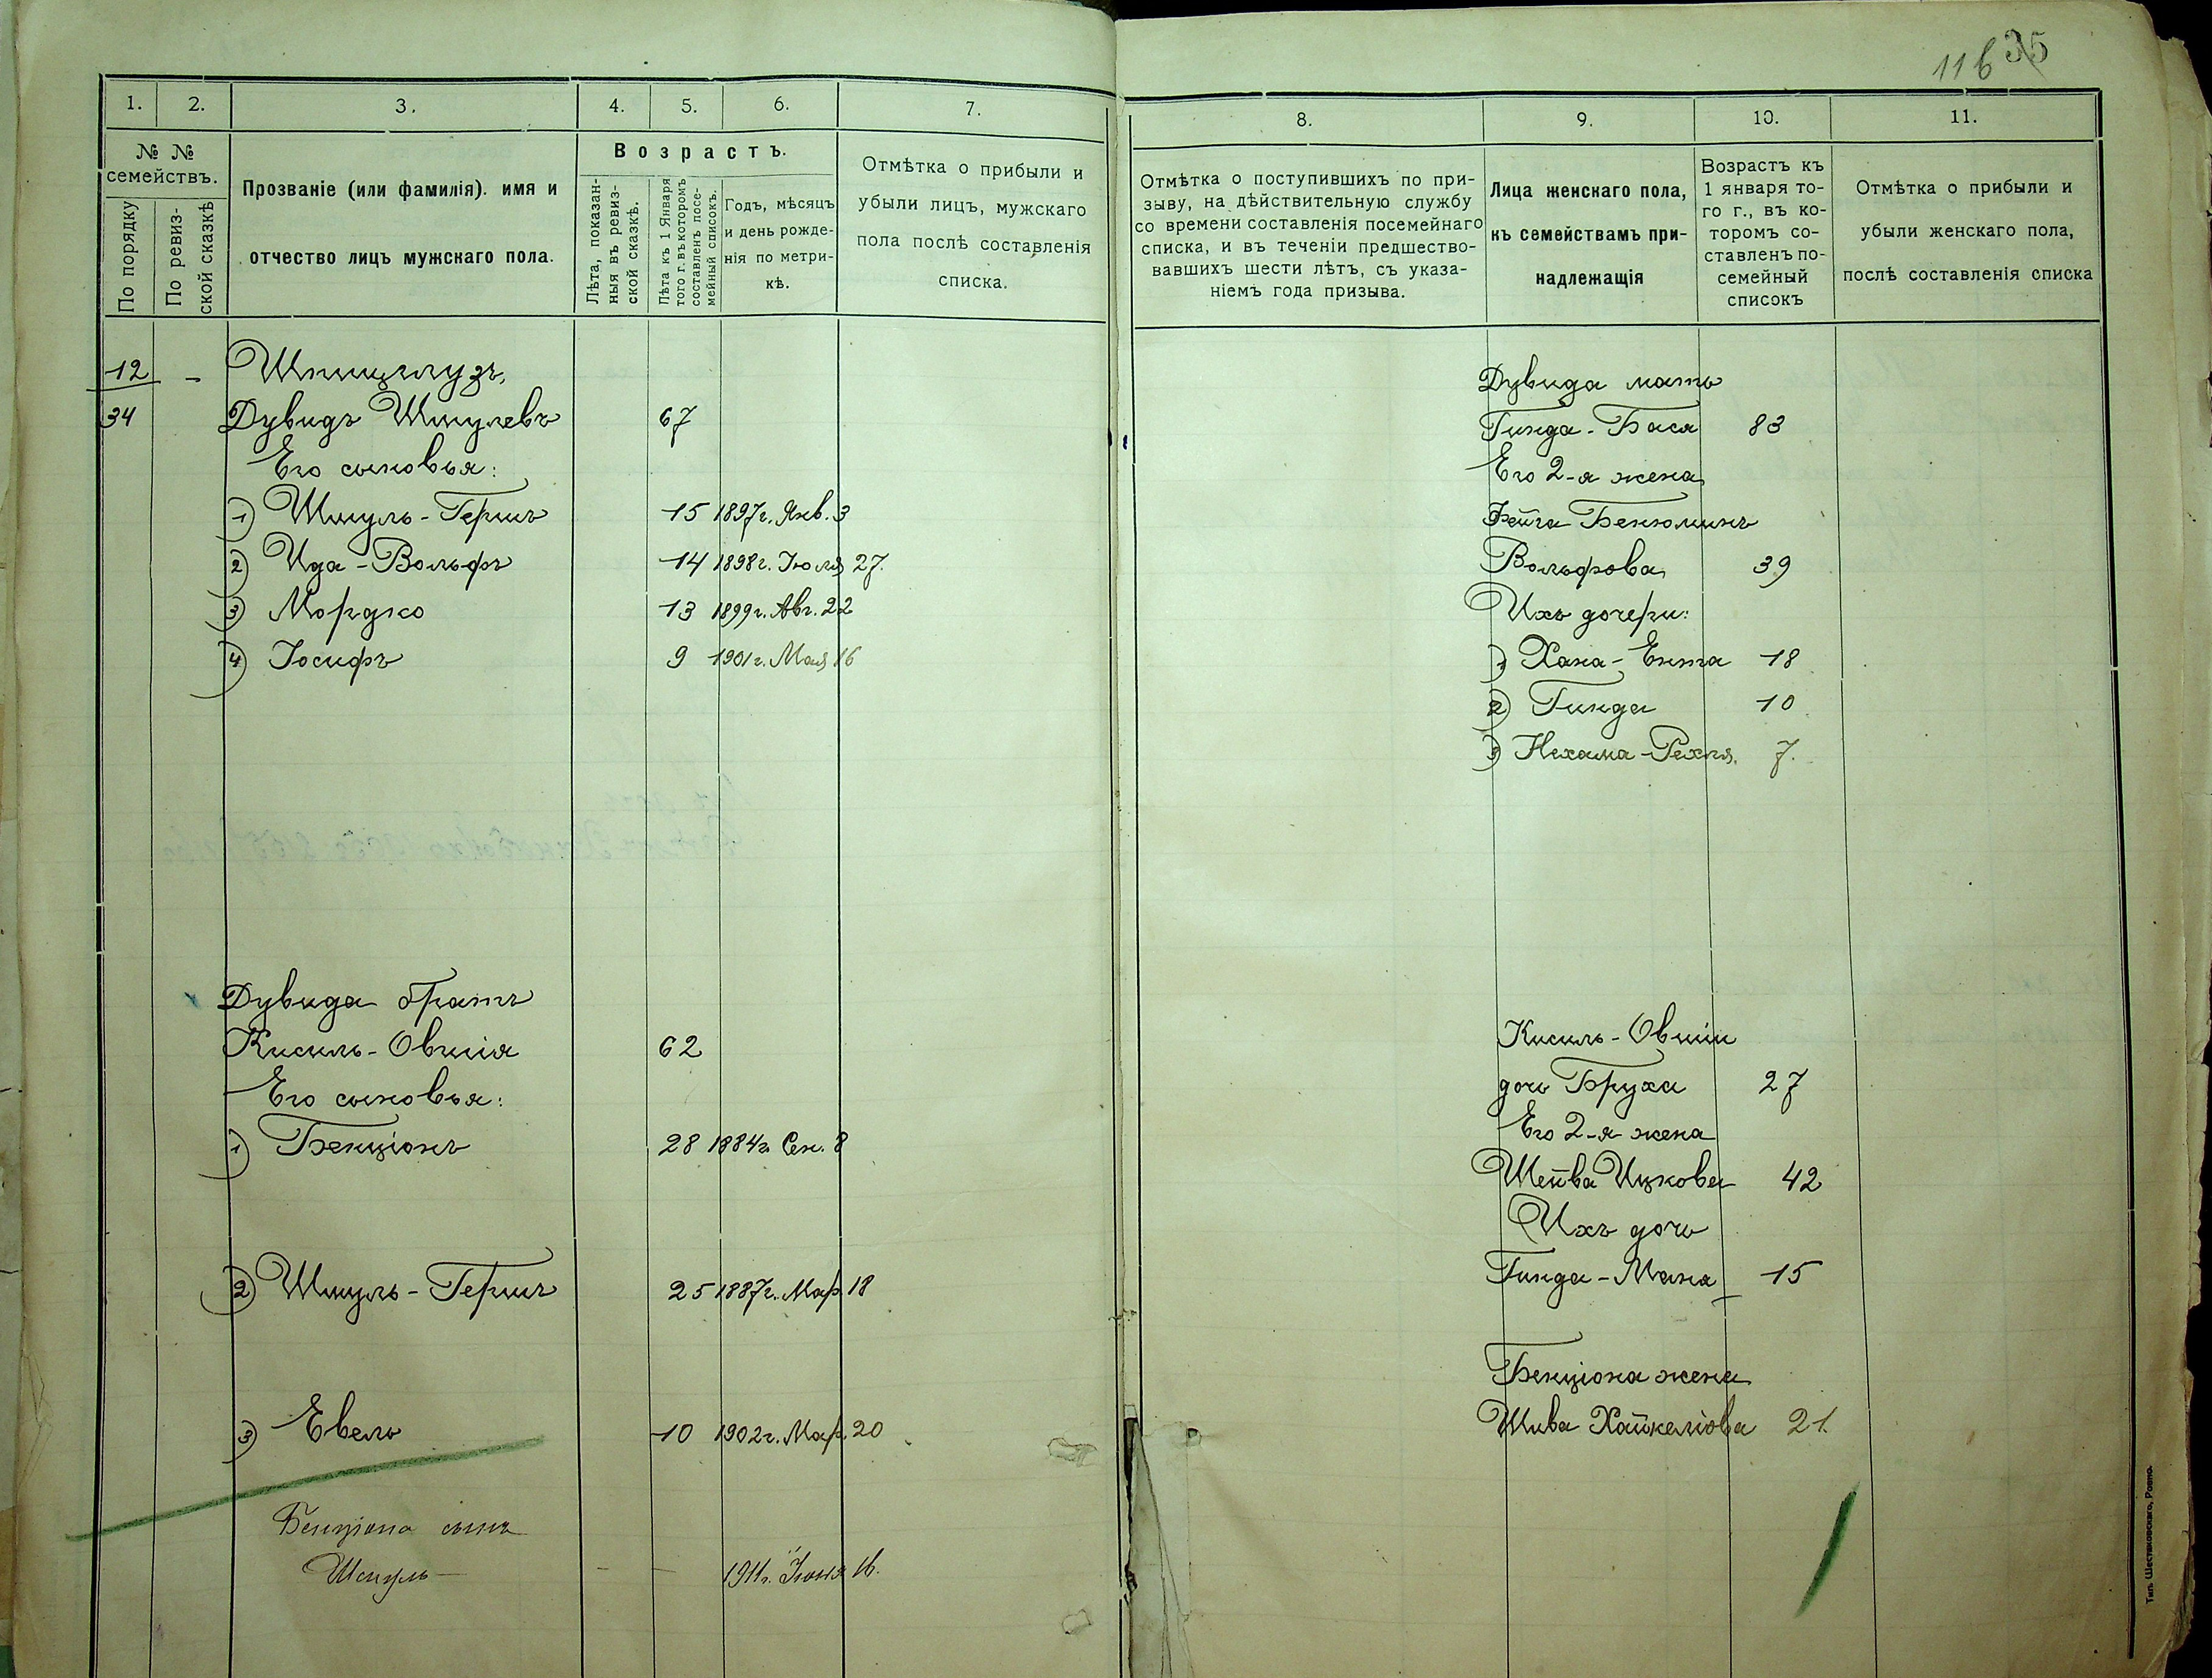 116 35
1.
2.
3.
4.
5.
6.
7.
№ №
семействъ.
По порядку
По ревиз-
ской сказкѣ
Прозваніе (или фамилія). имя и
отчество лицъ мужскаго пола.
Возрастъ.
Лѣта, показан-
ныя въ ревиз-
ской сказкѣ.
Лѣта къ 1 Января
того г. въ которомъ
составленъ посе-
мейный списокъ.
Годъ, мѣсяцъ
и день рожде-
нія по метри-
кѣ.
Отмѣтка о прибыли и
убыли лицъ, мужскаго
пола послѣ составленія
списка.
12 - Шпицглузъ,
34 Дувидъ Шмулевъ 67
Его сыновья:
1) Шмуль-Гершъ 15 1897г. Янв. 3
2) Ида-Вольфъ 14 1898г. Іюля 27.
3) Мордко 13 1899г. Авг. 22
4) Іосифъ 9 1901г. Мая 16
Дувида братъ
Кисиль-Овшія 62
Его сыновья:
1) Бенціонъ 28 1884г. Сен. 8
2) Шмуль-Гершъ 25 1887г. Мар. 18
3) Евель 10 1902г. Мар. 20
Бенціона сынъ
Шмуль - - - 1911г. Іюня 16.
8.
9.
10.
11.
Отмѣтка о поступившихъ по при-
зыву, на дѣйствительную службу
со времени составленія посемейнаго
списка, и въ теченіи предшество-
вавшихъ шести лѣтъ, съ указа-
ніемъ года призыва.
Лица женскаго пола,
къ семействамъ при-
надлежащія
Возрастъ къ
1 января то-
го г., въ ко-
торомъ со-
ставленъ по-
семейный
списокъ
Отмѣтка о прибыли и
убыли женскаго пола,
послѣ составленія списка
Дувида мать
Гинда-Бася 83
Его 2-я жена
Фейга Бенюминъ
Вольфова 39
Ихъ дочери:
1) Хана-Ента 18
2) Гинда 10
3) Нехама-Рехля 7.
Кисиль-Овшіи
дочь Бруха 27
Его 2-я жена
Шейва Ицкова 42
Ихъ дочь
Гинда-Маня 15
Бенціона жена
Шива Хайкеліова 21.
Тип. Шестаковскаго, Ровно.